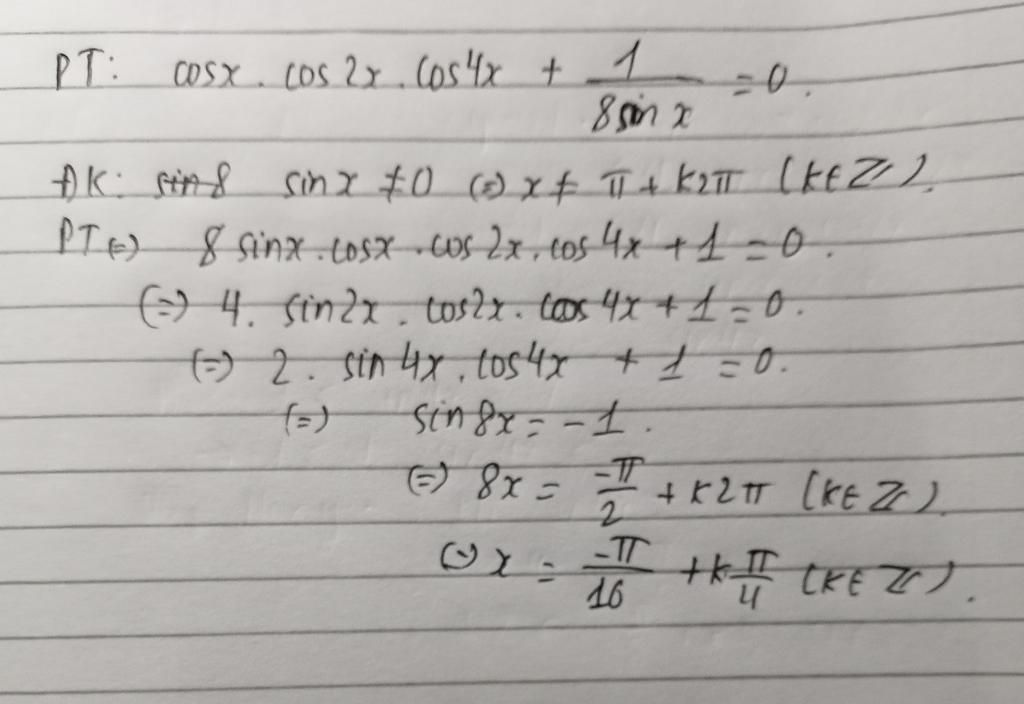 PT: cosx . cos 2x . cos 4x + 1/(8 sin x) = 0.
ĐK: sin 8 sin x ≠ 0 (=) x ≠ π + k2π (k∈ℤ).
PT (=) 8 sinx . cosx . cos 2x . cos 4x + 1 = 0.
(=) 4. sin2x . cos2x . cos 4x + 1 = 0.
(=) 2 . sin 4x . cos4x + 1 = 0.
(=) sin 8x = -1.
(=) 8x = -π/2 + k2π (k∈ℤ)
(=) x = -π/16 + k π/4 (k∈ℤ).